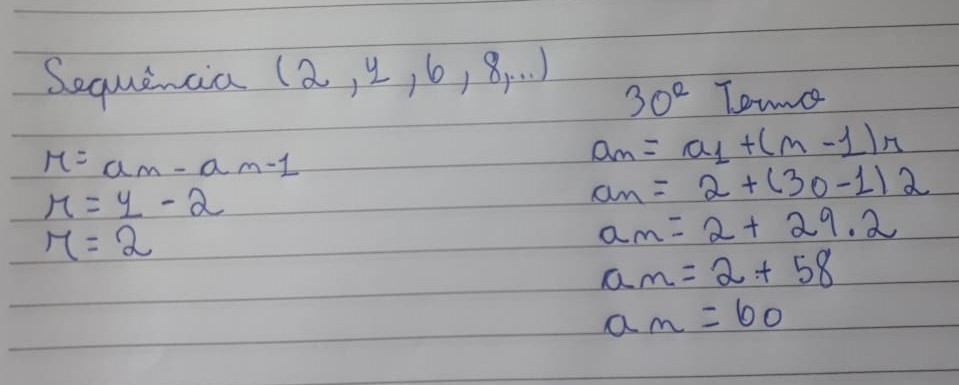 Sequência (2, 4, 6, 8,...)
r = an - an-1
r = 4 - 2
r = 2
30º Termo
an = a1 + (n - 1)r
an = 2 + (30 - 1) 2
an = 2 + 29.2
an = 2 + 58
an = 60